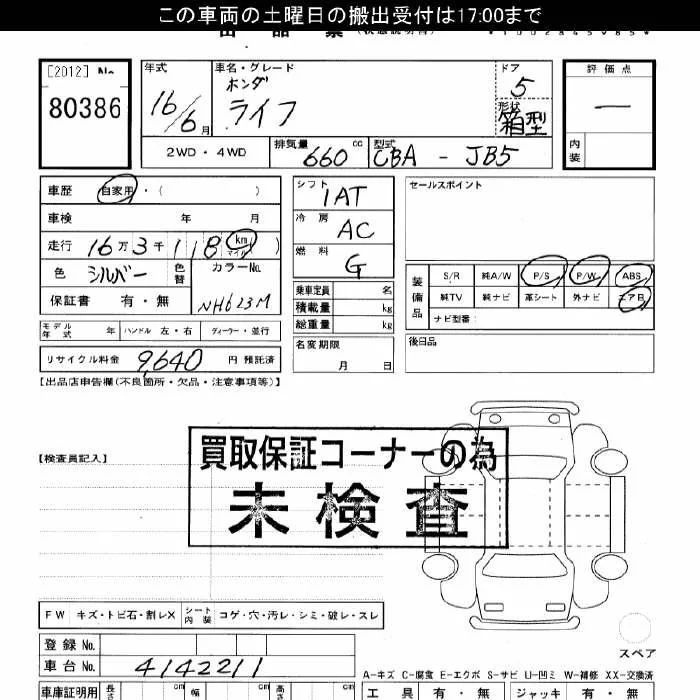 この車両の土曜日の搬出受付は17:00まで
出品票 (状態説明書)
[2012] No.
80386
年式
16/6月
車名・グレード
ホンダ
ライフ
ドア
5
形状
箱型
評価点
—
内装
2WD・4WD
排気量 660 cc
型式 CBA - JB5
車歴 自家用・( )
車検 年 月
走行 16万3千118 km マイル )
色 シルバー
色替
カラーNo.
NH623M
保証書 有・無
シフト
IAT
冷房
AC
燃料
G
乗車定員 名
積載量 kg
総重量 kg
セールスポイント
装備品
S/R 純A/W P/S P/W ABS
純TV 純ナビ 革シート 外ナビ エアB
ナビ型番:
モデル年式 年 ハンドル 左・右 ディーラー・並行
リサイクル料金 9,640 円 預託済
名変期限
月 日
後日品
【出品店申告欄(不良箇所・欠品・注意事項等)】
【検査員記入】
買取保証コーナーの為
未検査
FW キズ・トビ石・割レX シート内装 コゲ・穴・汚レ・シミ・破レ・スレ
登録No.
車台No. 4142211
スペア
A-キズ C-腐食 E-エクボ S-サビ U-凹ミ W-補修 XX-交換済
車庫証明用 長さ cm 幅 cm 高さ cm
工具 有・無 ジャッキ 有・無